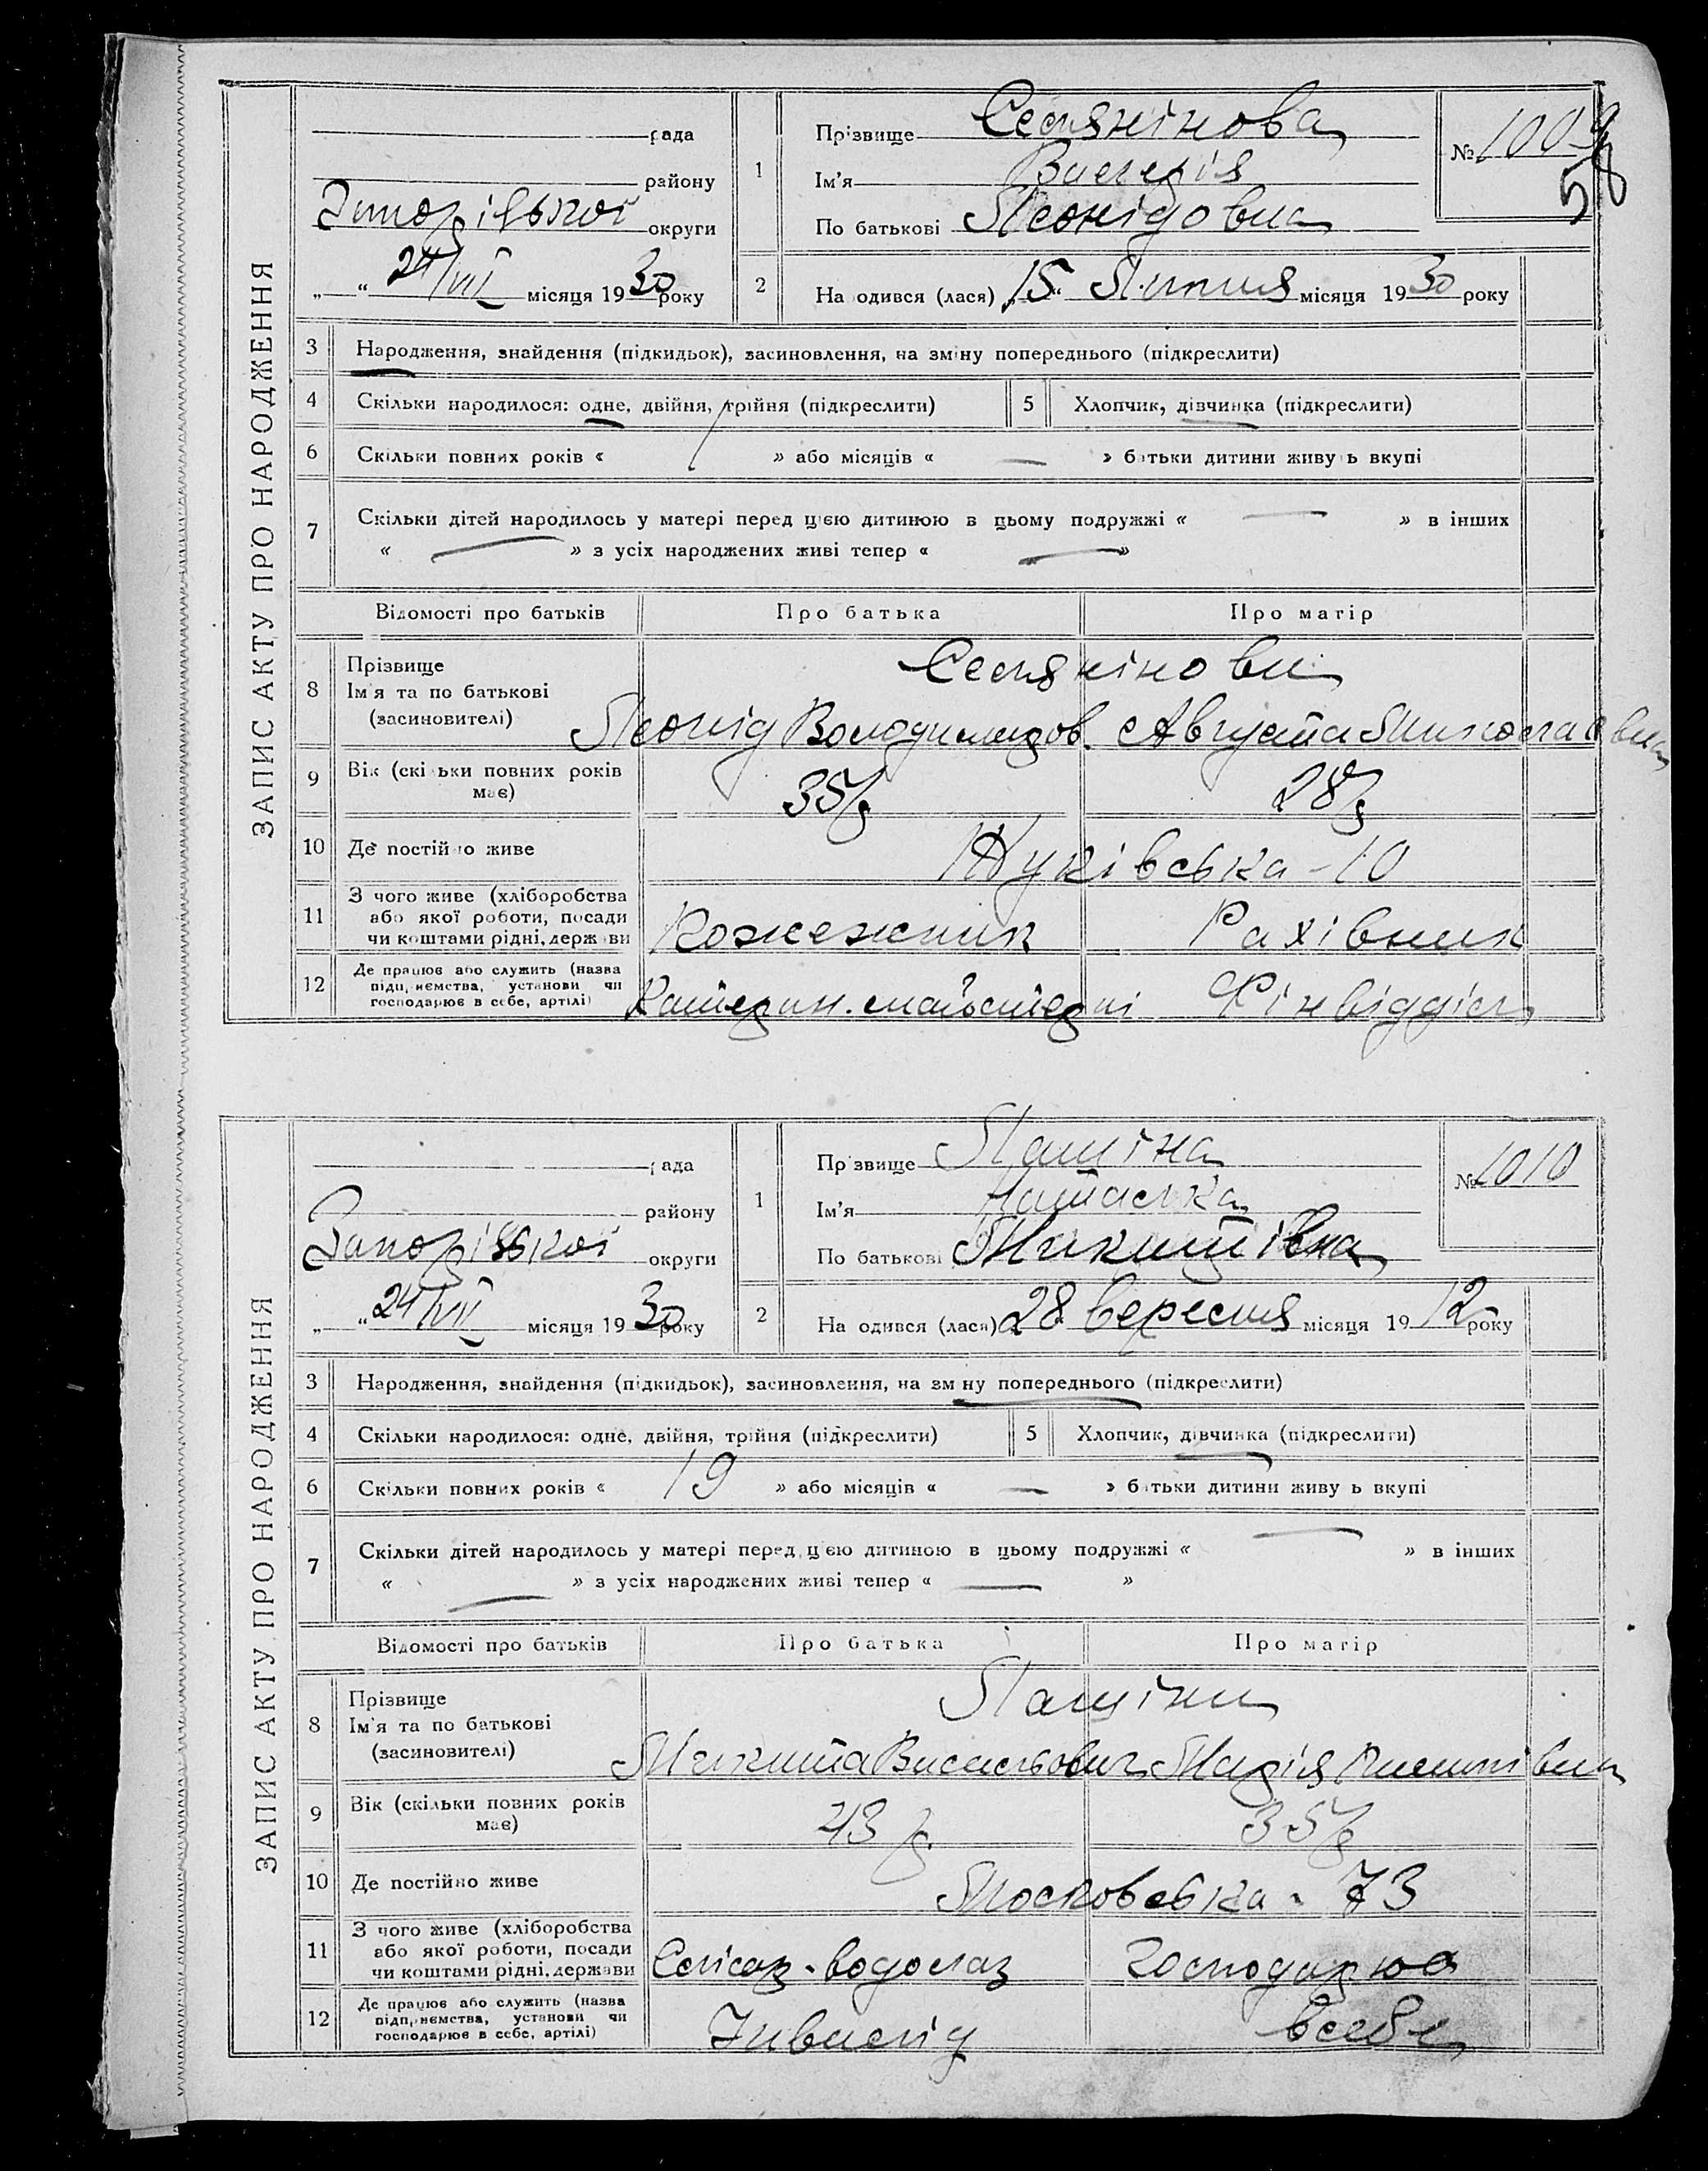 ЗАПИС АКТУ ПРО НАРОДЖЕННЯ
рада
району
Запорізької округи
„ “ 24/VII місяця 1930 року
1 Прізвище Селянінова
Ім'я Валерія
По батькові Леонідовна
№ 1009
58
2 На одився (лася) „15“ Липня місяця 1930 року
3 Народження, знайдення (підкидьок), засиновлення, на зміну попереднього (підкреслити)
4 Скільки народилося: одне, двійня, трійня (підкреслити) 5 Хлопчик, дівчинка (підкреслити)
6 Скільки повних років « 1 » або місяців « — » батьки дитини живуть вкупі
7 Скільки дітей народилось у матері перед цією дитиною в цьому подружжі « — » в інших
« — » з усіх народжених живі тепер « — »
Відомості про батьків Про батька Про матір
8 Прізвище Селянінови
Ім'я та по батькові
(засиновителі) Леонід Володимиров. Августа Миколаевна
9 Вік (скільки повних років має) 35 р 28 р
10 Де постійно живе Жуківська - 10
11 З чого живе (хліборобства
або якої роботи, посади
чи коштами рідні, держави Кожежник Рахівник
12 Де працює або служить (назва
підприємства, установи чи
господарює в себе, артілі) майстерні Фінвідділ
ЗАПИС АКТУ ПРО НАРОДЖЕННЯ
рада
району
Запорізької округи
„ “ 24/VII місяця 1930 року
1 Прізвище Лащіна
Ім'я Наталка
По батькові Микитівна
№ 1010
2 На одився (лася) 28 вересня місяця 1912 року
3 Народження, знайдення (підкидьок), засиновлення, на зміну попереднього (підкреслити)
4 Скільки народилося: одне, двійня, трійня (підкреслити) 5 Хлопчик, дівчинка (підкреслити)
6 Скільки повних років « 19 » або місяців « — » батьки дитини живуть вкупі
7 Скільки дітей народилось у матері перед цією дитиною в цьому подружжі « — » в інших
« — » з усіх народжених живі тепер « — »
Відомості про батьків Про батька Про матір
8 Прізвище Лащіни
Ім'я та по батькові
(засиновителі) Микита Васильович Марія
9 Вік (скільки повних років має) 43 р. 35 р
10 Де постійно живе Московська - 73
11 З чого живе (хліборобства
або якої роботи, посади
чи коштами рідні, держави Слісар-водолаз Господарює
12 Де працює або служить (назва
підприємства, установи чи
господарює в себе, артілі) в себе